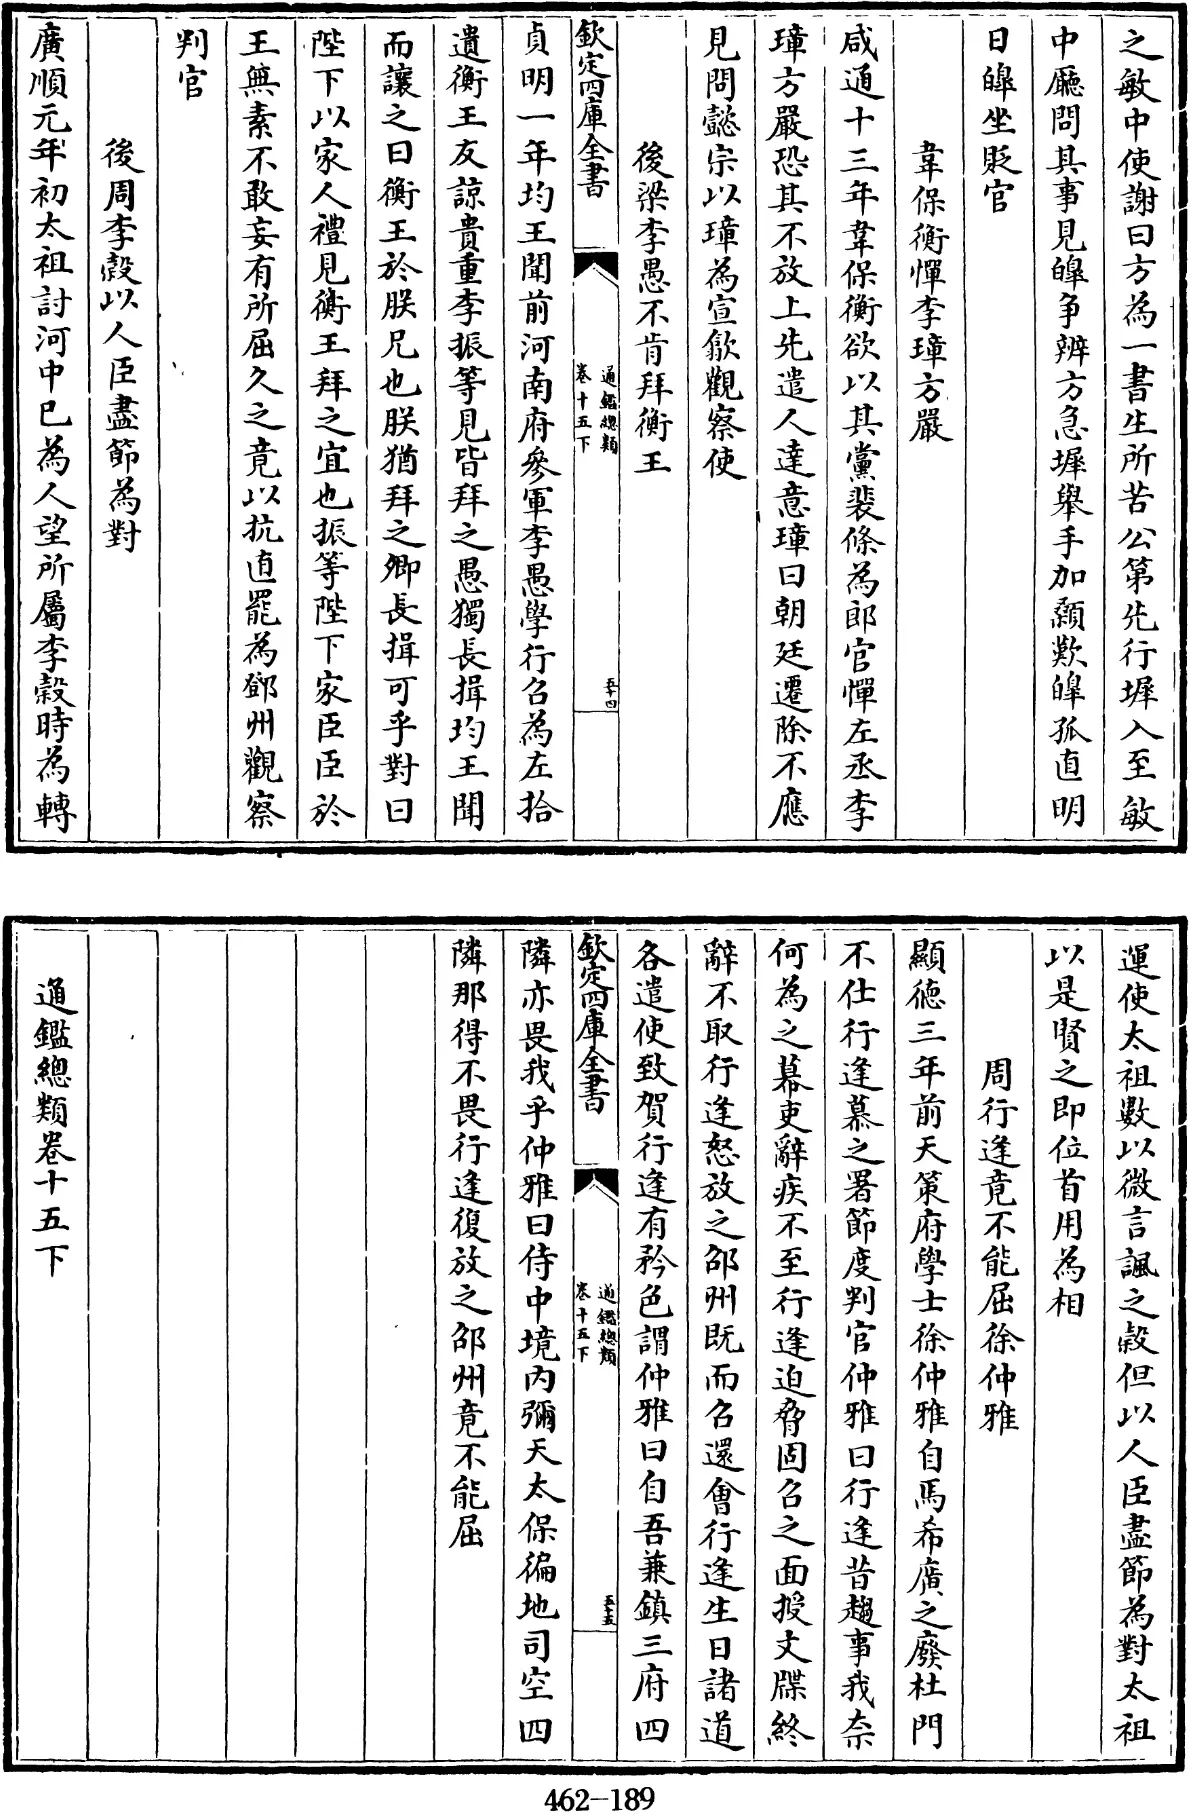 之敏中使謝曰方為一書生所苦公第先行墀入至敏
中廳問其事見皥争辨方急墀舉手加顙歎皥孤直明
日皥坐貶官
韋保衡憚李璋方嚴
咸通十三年韋保衡欲以其黨裴條為郎官憚左丞李
璋方嚴恐其不放上先遣人達意璋曰朝廷遷除不應
見問懿宗以璋為宣歙觀察使
後梁李愚不肯拜衡王
欽定四庫全書
通鑑總類
卷十五下
五十四
貞明一年均王聞前河南府參軍李愚學行召為左拾
遺衡王友諒貴重李振等見皆拜之愚獨長揖均王聞
而讓之曰衡王於朕兄也朕猶拜之卿長揖可乎對曰
陛下以家人禮見衡王拜之宜也振等陛下家臣臣於
王無素不敢妄有所屈久之竟以抗直罷為鄧州觀察
判官
後周李穀以人臣盡節為對
廣順元年初太祖討河中已為人望所屬李穀時為轉
運使太祖數以微言諷之穀但以人臣盡節為對太祖
以是賢之即位首用為相
周行逢竟不能屈徐仲雅
顯德三年前天策府學士徐仲雅自馬希廣之廢杜門
不仕行逢慕之署節度判官仲雅曰行逢昔趨事我奈
何為之幕吏辭疾不至行逢迫脅固召之面授文牒終
辭不取行逢怒放之邵州既而召還會行逢生日諸道
各遣使致賀行逢有矜色謂仲雅曰自吾兼鎮三府四
欽定四庫全書
通鑑總類
卷十五下
五十五
隣亦畏我乎仲雅曰侍中境内彌天太保徧地司空四
隣那得不畏行逢復放之邵州竟不能屈
通鑑總類卷十五下
462-189